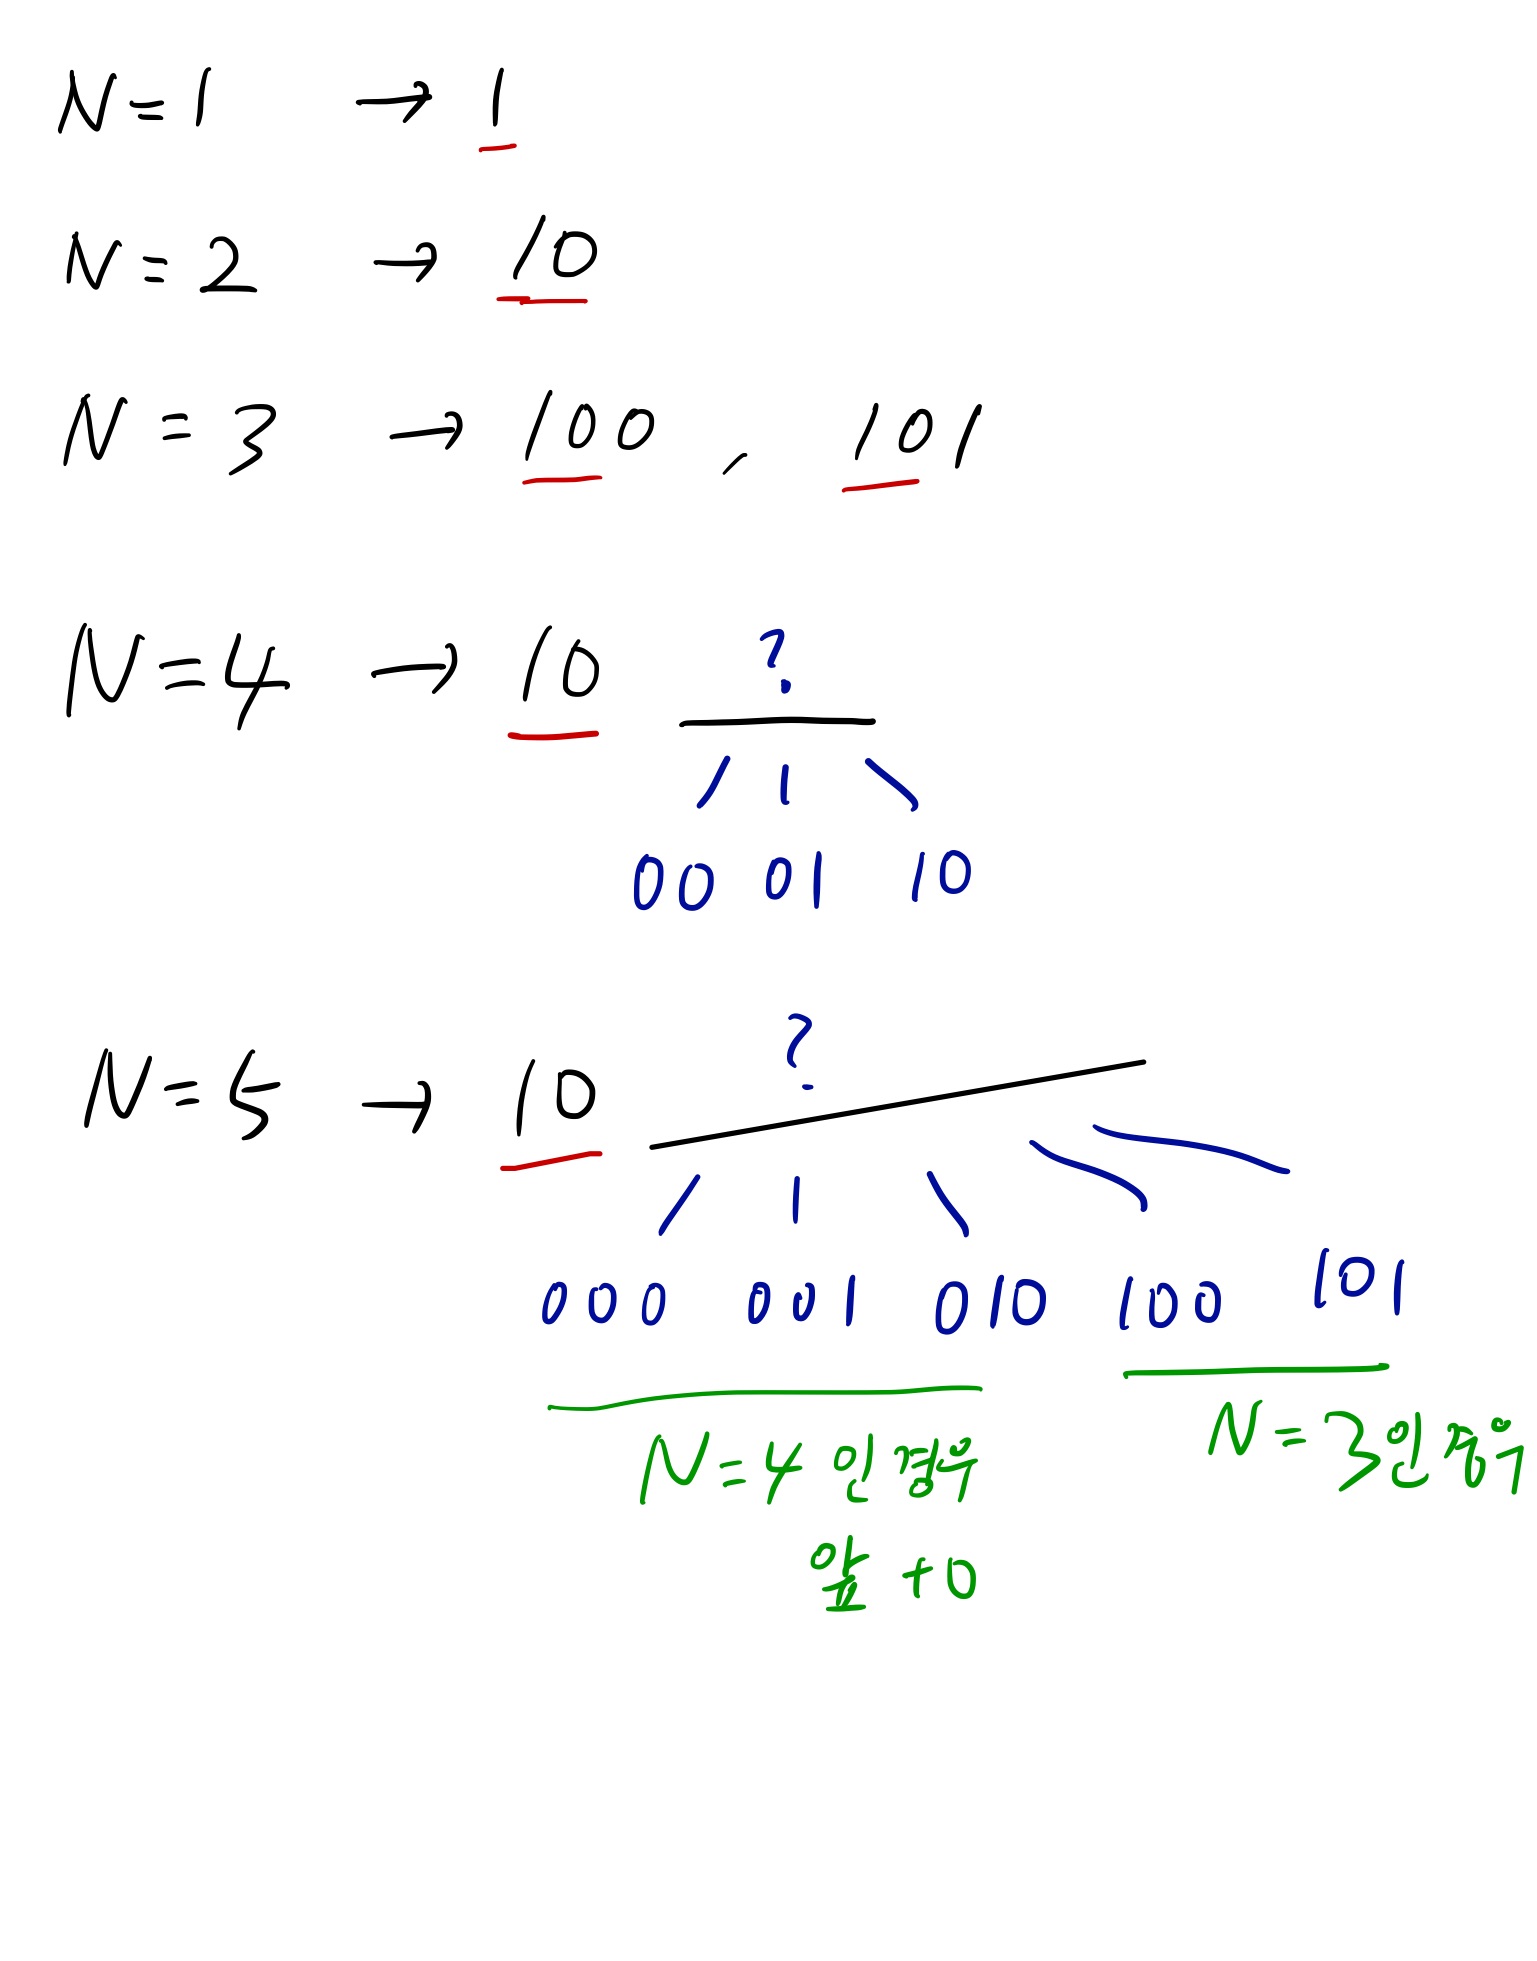 N=1 → 1
N=2 → 10
N=3 → 100 , 101
N=4 → 10 ?
00 01 10
N=5 → 10 ?
000 001 010 100 101
N=4인 경우 N=3인 경우
앞 +0